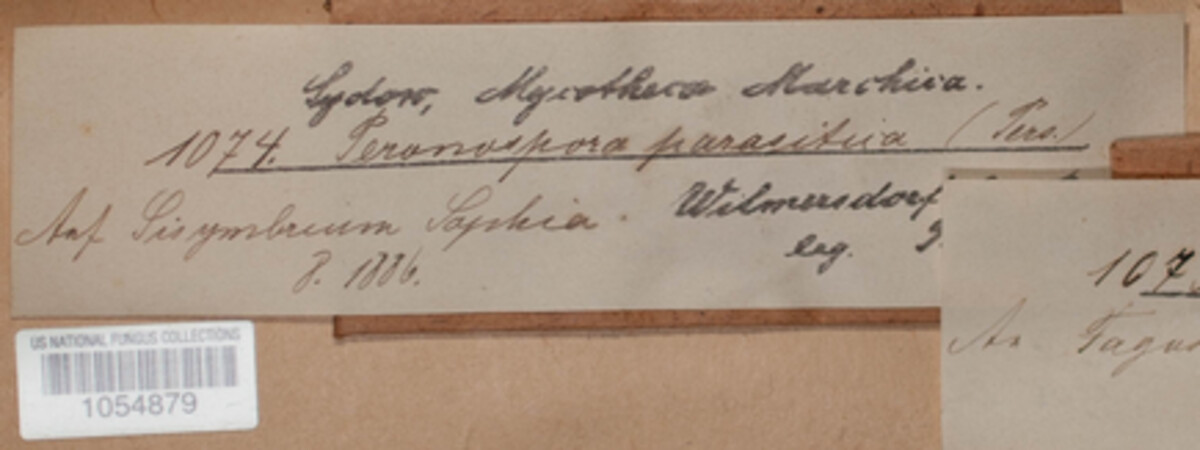 Sydow, Mycotheca Marchica.
1074. Peronospora parasitica (Pers.)
Auf Sisymbrium Sophia. Wilmersdorf
8. 1886. leg.
107
An Fagus
US NATIONAL FUNGUS COLLECTIONS
1054879